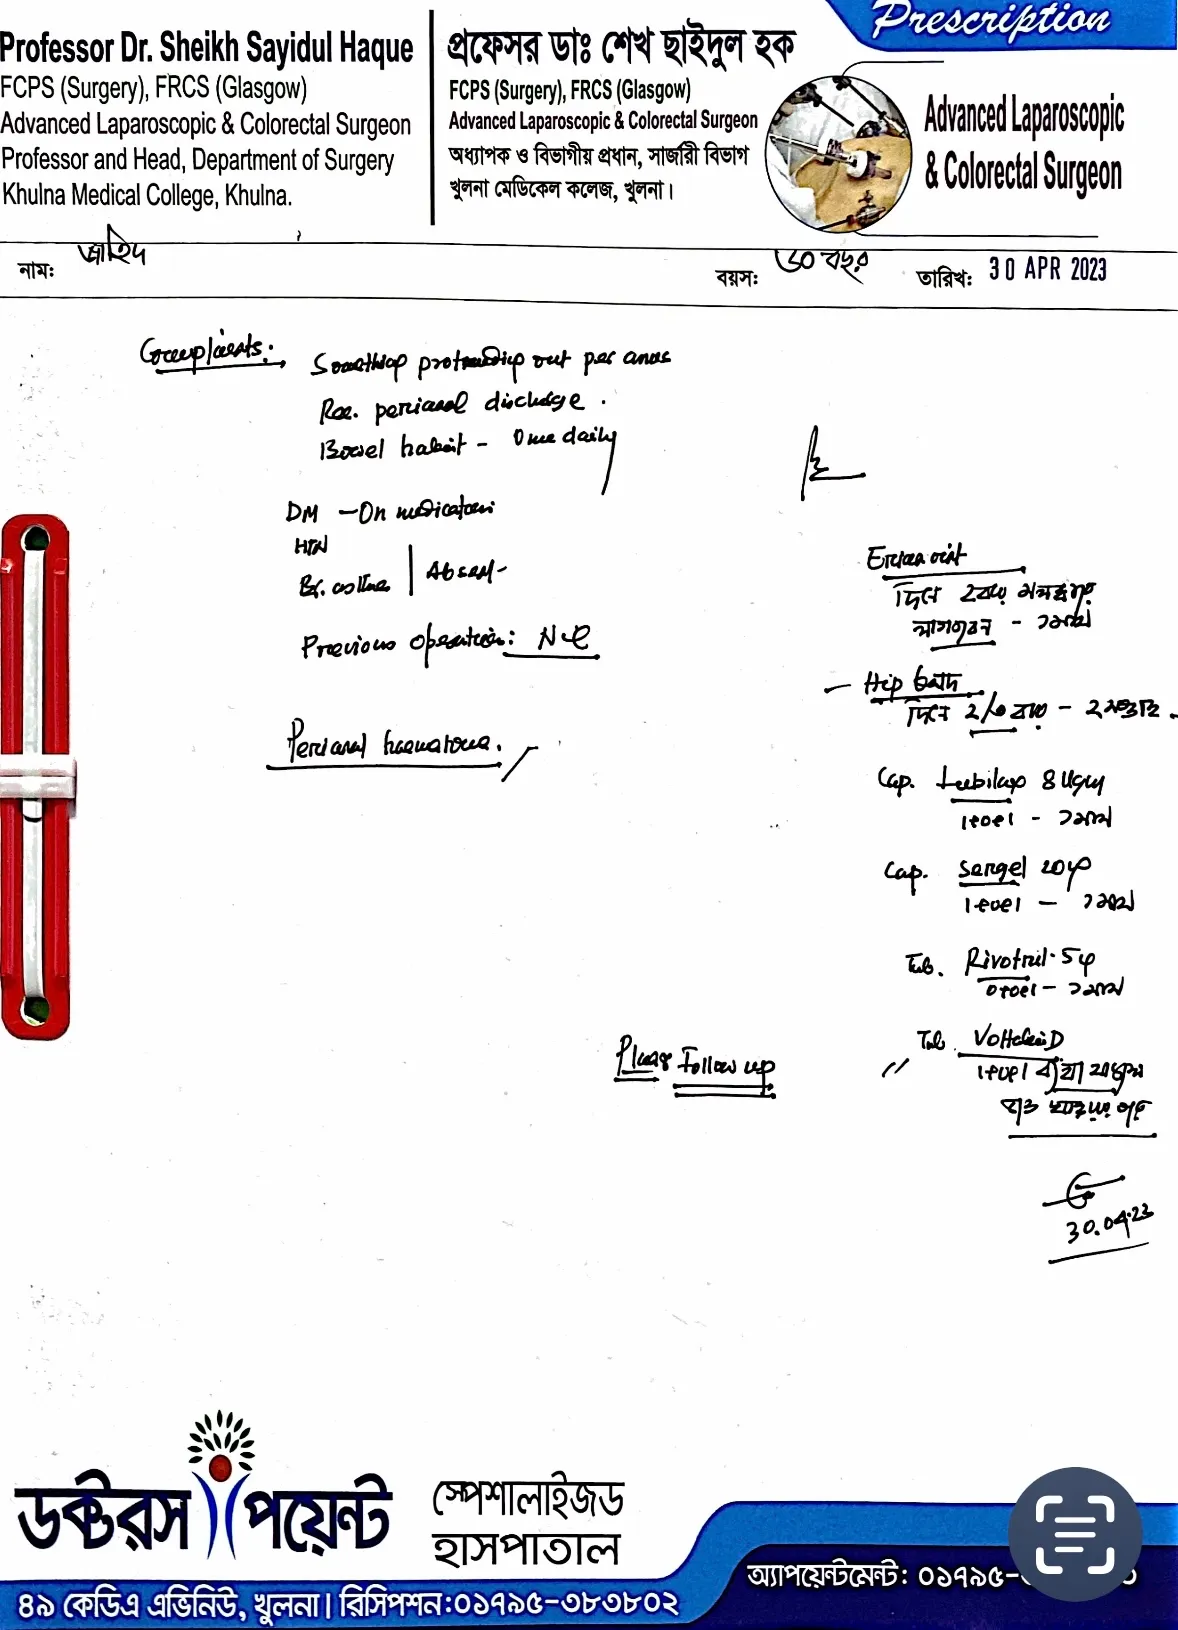 Prescription
Professor Dr. Sheikh Sayidul Haque
FCPS (Surgery), FRCS (Glasgow)
Advanced Laparoscopic & Colorectal Surgeon
Professor and Head, Department of Surgery
Khulna Medical College, Khulna.
প্রফেসর ডাঃ শেখ ছাইদুল হক
FCPS (Surgery), FRCS (Glasgow)
Advanced Laparoscopic & Colorectal Surgeon
অধ্যাপক ও বিভাগীয় প্রধান, সার্জারী বিভাগ
খুলনা মেডিকেল কলেজ, খুলনা।
Advanced Laparoscopic
& Colorectal Surgeon
নাম: জাহিদ
বয়স: ৬০ বছর
তারিখ: 30 APR 2023
Complaints:
Something protruding out per anus
perianal discharge.
Bowel habit - Once daily
DM - On medication
HTN
Br. asthma | Absent
Previous operation: Nil
Perianal haematoma.
Erian oint
দিনে ২বার
- ১মাস
- Hip bath
দিনে ২/৩ বার - ২ সপ্তাহ.
Cap. Lubilax 8 µgm
১+০+১ - ১মাস
Cap. Sergel 20
১+০+১ - ১মাস
Tab. Rivotril .5
০+০+১ - ১মাস
Tab. Voltalin D
১+০+১
Please Follow up
30.04.23
ডক্টরস পয়েন্ট
স্পেশালাইজড
হাসপাতাল
৪৯ কেডিএ এভিনিউ, খুলনা। রিসিপশন:০১৭৯৫-৩৮৩৮০২
অ্যাপয়েন্টমেন্ট: ০১৭৯৫-